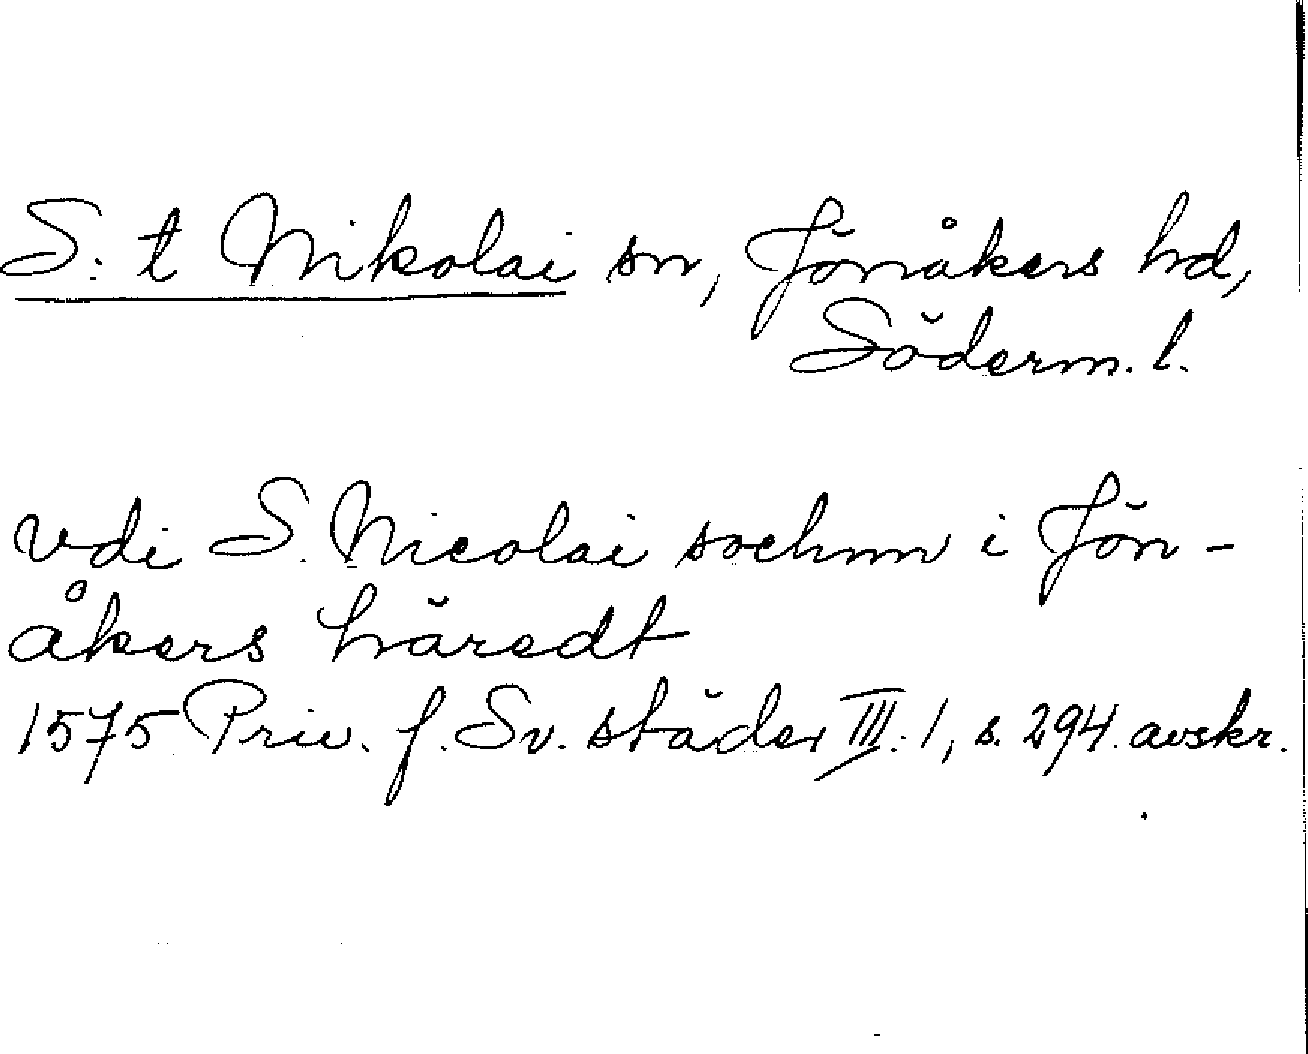 S:t Nikolai sn, Jönåkers hd,
Söderm. l.
vdi S. Nicolai sochnn i Jön-
åkers häredt
1575 Priv. f. Sv. städer III:1, s. 294. avskr.